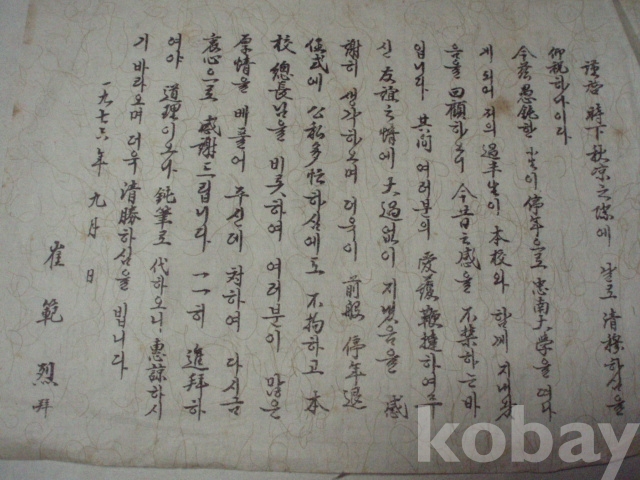 謹啓 時下秋凉之際에 날로 清穆하심을
仰祝하나이다
今玆 愚鈍한 小生이 停年으로 忠南大学을 떠나
게 되어 저의 過半生이 本校와 함께 지내왔
음을 回顧하오니 今昔之感을 不禁하는바
입니다 其间 여러분의 愛護鞭撻하여주
신 友誼之情에 大過없이 지냈음을 感
謝히 생각하오며 더욱이 前般 停年退
任式에 公私多忙하심에도 不拘하고 本
校 總長님을 비롯하여 여러분이 많은
厚情을 베풀어 주신데 対하여 다시금
衷心으로 感謝드립니다 一一히 進拜하
여야 道理이오나 鈍筆로 代하오니 惠諒하시
기 바라오며 더욱 清勝하심을 빕니다
一九七六年 九月 日
崔範烈 拜
kobay